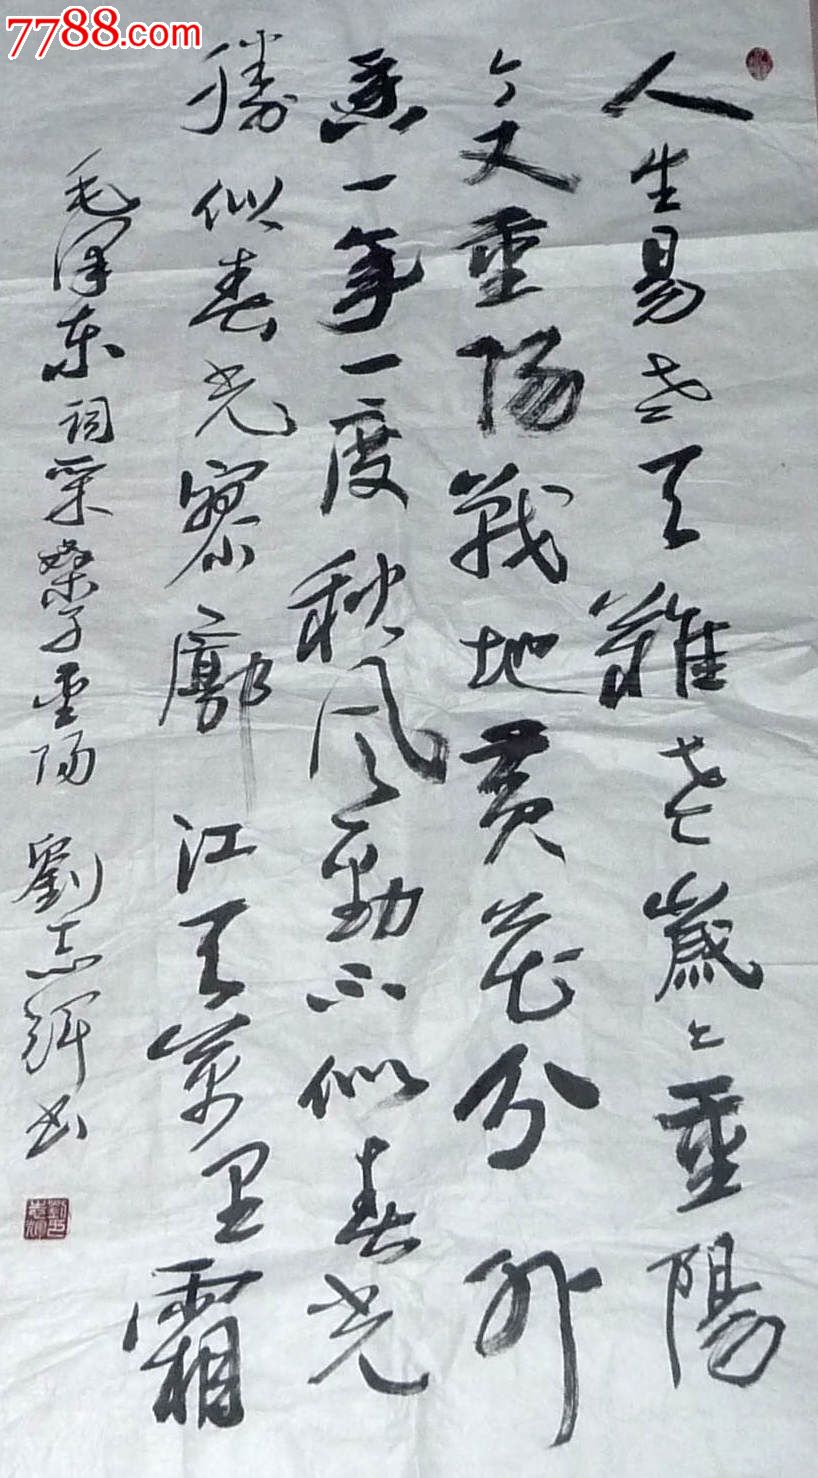 7788.com
人生易老天难老歲々重陽
今又重阳戰地黄花分外
香一年一度秋風動不似春光
勝似春光寥廓江天萬里霜
毛泽东词采桑子重阳 劉志辉书